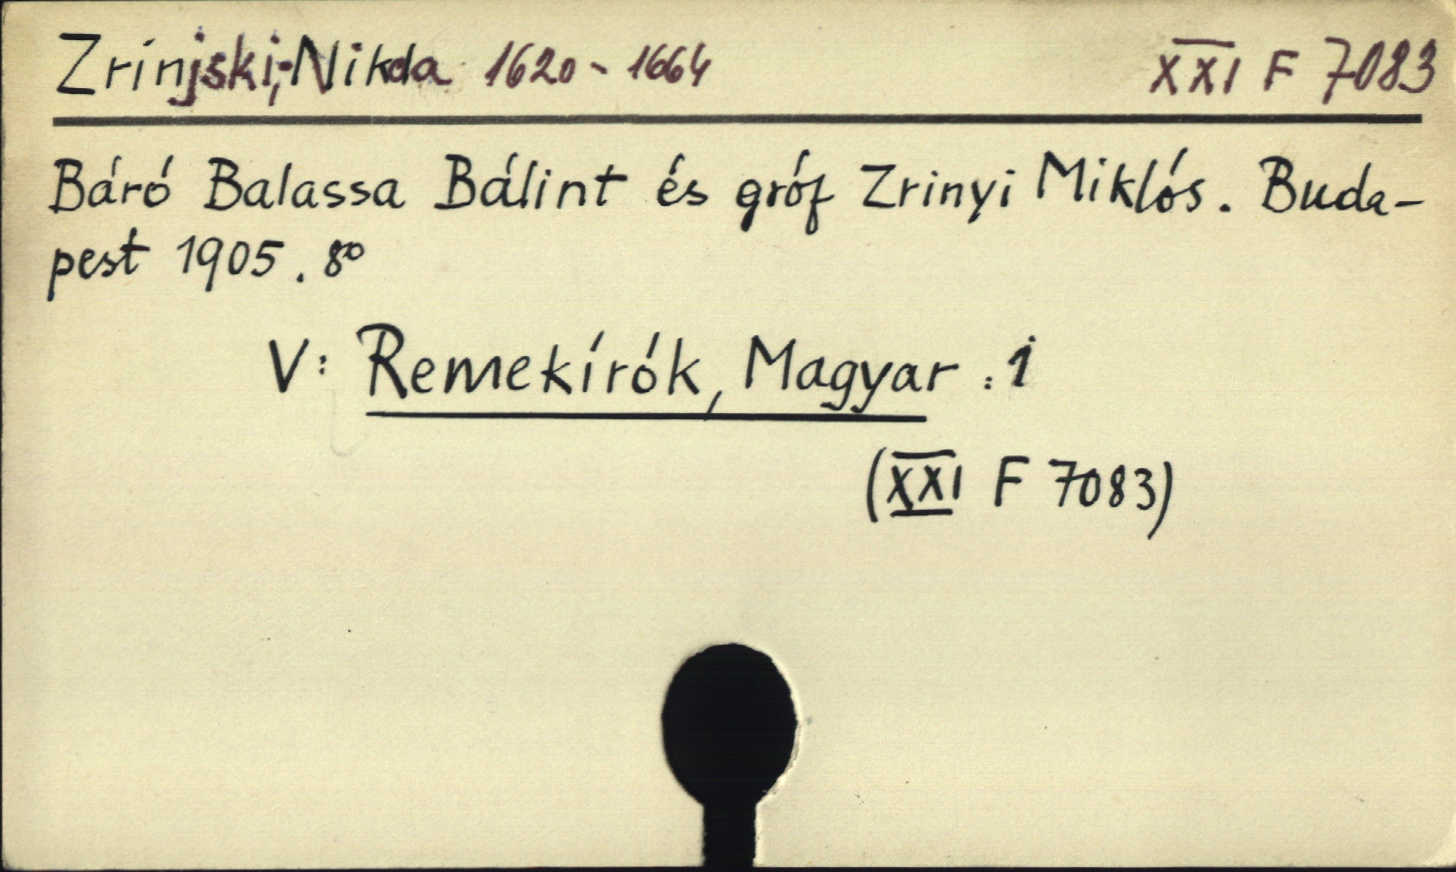 Zrinjski, Nikola 1620 - 1664 XXI F 7083
Báró Balassa Bálint és gróf Zrinyi Miklós. Buda-
pest 1905. 8°
V: Remekírók, Magyar : 1
(XXI F 7083)